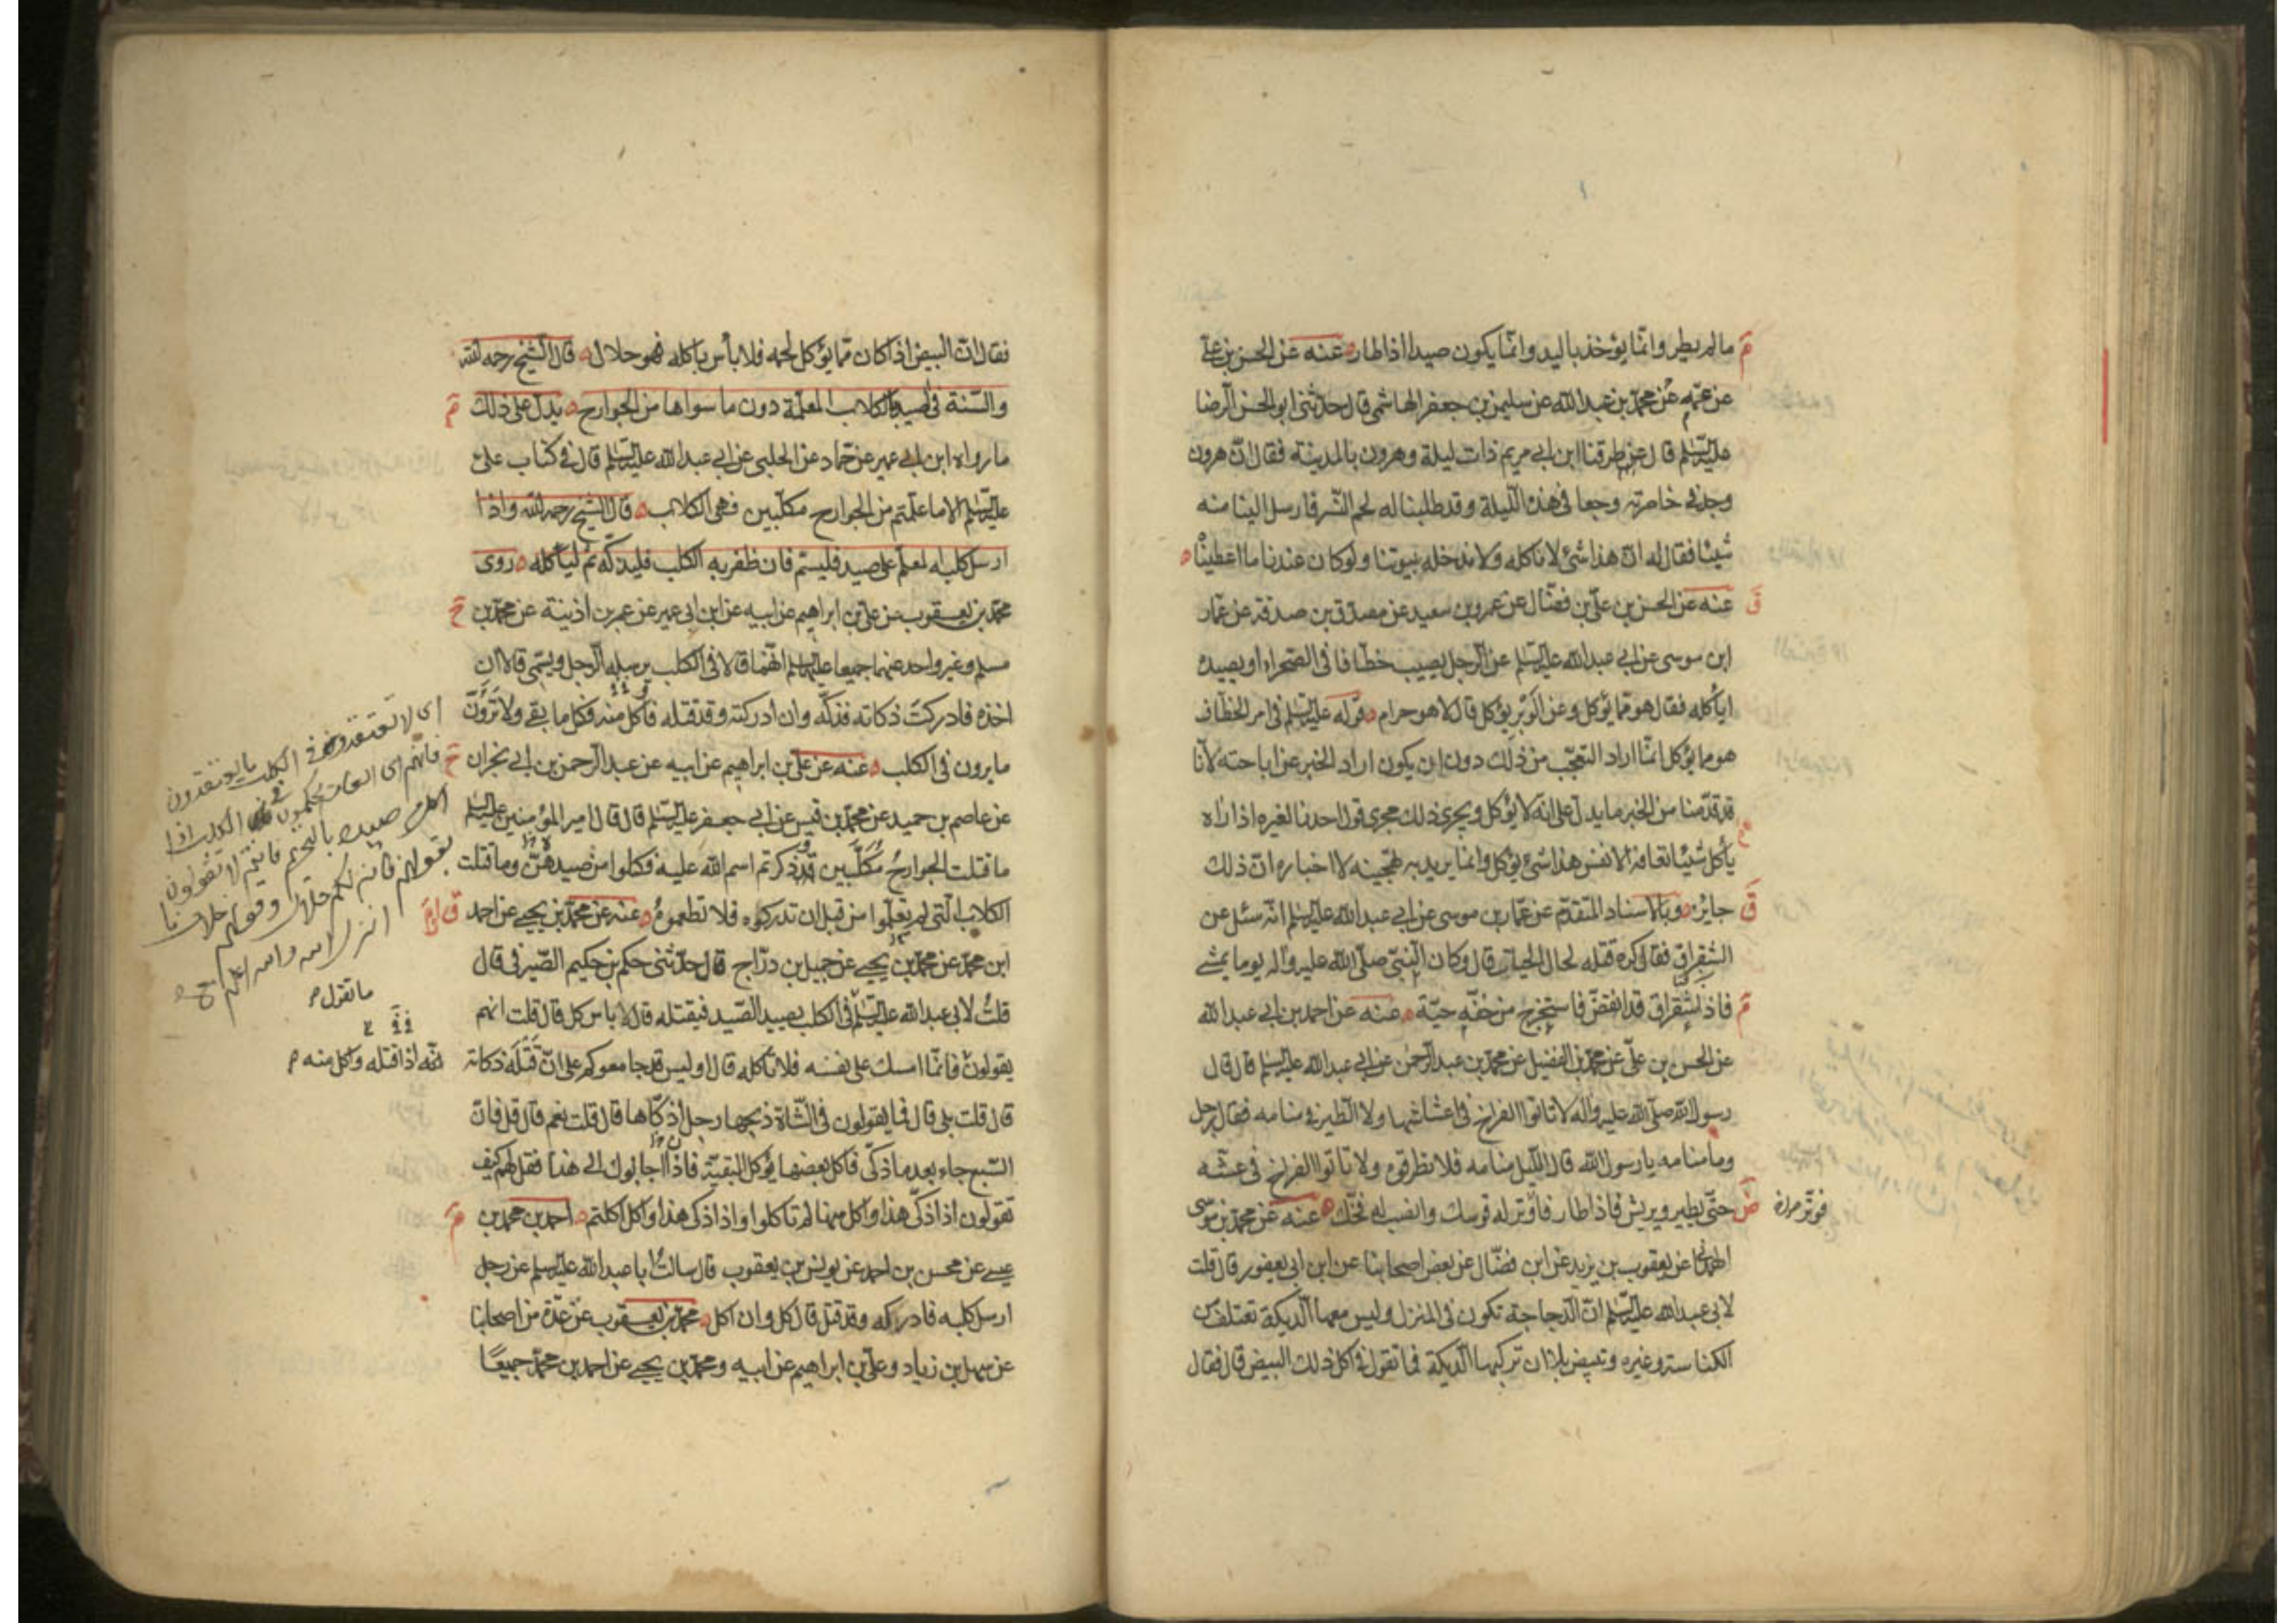 مالم يطر وانّما يؤخذ باليد وانّما يكون صيدا اذا طار عنه عن الحسن بن علي
عن عمّه عن محمّد بن عبد الله عن سليمن بن جعفر الهاشمي قال حدّثني ابو الحسن الرضا
عليه السّلم قال طرقنا ابن ابي مريم ذات ليلة وهرون بالمدينة فقال انّ هرون
وجد في خاصرته وجعا في هذه اللّيلة وقد طلبنا له لحم النّسر فارسل الينا منه
شيئا فقال له انّ هذا شئ لا ناكله ولا ندخله بيوتنا ولو كان عندنا ما اعطيناه
عنه عن الحسن بن عليّ بن فضّال عن عمرو بن سعيد عن مصدّق بن صدقة عن عمّار
ابن موسى عن ابي عبد الله عليه السّلم عن الرّجل يصيب خطّافا في الصّحراء او يصيده
اياكله فقال هو ممّا يؤكل وعن الوبر يؤكل قال لا هو حرام قوله عليه السّلم في امر الخطّاف
هو مما يؤكل انّما اراد التعجّب من ذلك دون ان يكون اراد الخبر عن اباحته لانّا
قد قدّمنا من الخبر ما يدلّ على انّه لا يؤكل ويجري ذلك مجرى قول احدنا لغيره اذا راه
يأكل شيئا تعافه الانفس هذا شئ يؤكل وانّما يريد به تهجينه لا اخباره انّ ذلك
جايز وبالاسناد المتقدّم عن عمّار بن موسى عن ابي عبد الله عليه السّلم انّه سئل عن
الشقراق فقال كره قتله لحال الحيات قال وكان النّبيّ صلّى الله عليه وآله يوما يمشي
فاذا شقراق قد انقضّ فاستخرج من خفّه حيّة عنه عن احمد بن ابي عبد الله
عن الحسن بن عليّ عن محمّد بن الفضيل عن محمّد بن عبد الرّحمن عن ابي عبد الله عليه السّلم قال قال
رسول الله صلّى الله عليه وآله لا تاتوا الفراخ في اعشاشها ولا الطّير في منامه فقال رجل
وما منامه يا رسول الله قال اللّيل منامه فلا تطرقوه ولا تاتوا الفراخ في عشّه
حتّى يطير ويريش فاذا طار فاوتر له قوسك وانصب له فخّك عنه عن محمّد بن موسى
الهمداني عن يعقوب بن يزيد عن ابن فضّال عن بعض اصحابنا عن ابن ابي يعفور قال قلت
لابي عبد الله عليه السّلم انّ الدّجاجة تكون في المنزل وليس معها الدّيكة تعتلف من
الكناسة وغيره وتبيض بلا ان تركبها الدّيكة فما تقول في اكل ذلك البيض قال فقال
فقال انّ البيض اذا كان ممّا يؤكل لحمه فلا بأس باكله فهو حلال قال الشّيخ رحمه الله
والسّنة في الصيد بالكلاب المعلّمة دون ما سواها من الجوارح يدلّ على ذلك
ما رواه ابن ابي عمير عن حمّاد عن الحلبي عن ابي عبد الله عليه السّلم قال في كتاب علي
عليه السّلم الا ما علّمتم من الجوارح مكلّبين فهي الكلاب قال الشّيخ رحمه الله واذا
ارسل كلبه المعلّم على صيد فليسمّ فان ظفر به الكلب فليذكّه ثم لياكله روى
محمّد بن يعقوب عن عليّ بن ابراهيم عن ابيه عن ابن ابي عمير عن عمر بن اذينة عن محمّد بن
مسلم وغير واحد عنهما جميعا عليهما السّلم انّهما قالا في الكلب يرسله الرّجل ويسمّي قالا ان
اخذه فادركت ذكاته فذكّه وان ادركته وقد قتله فاكل منه فكل ما بقي ولا تَرَوْنَ
ما يرون في الكلب عنه عن عليّ بن ابراهيم عن ابيه عن عبد الرّحمن بن ابي نجران
عن عاصم بن حميد عن محمّد بن قيس عن ابي جعفر عليه السّلم قال قال امير المؤمنين عليه السّلم
ما قتلت الجوارح مُكَلَّبين وذكرتم اسم الله عليه فكلوا من صيدهنّ وما قتلت
الكلاب الّتي لم تعلّموا من قبل ان تدركوه فلا تطعموه عنه عن محمّد بن يحيى عن احمد
ابن محمّد عن محمّد بن يحيى عن جميل بن درّاج قال حدّثني حكم بن حكيم الصّيرفي قال
قلت لابي عبد الله عليه السّلم في الكلب يصيد الصّيد فيقتله قال لا باس كل قال قلت انهم
يقولون فانّما امسك على نفسه فلا تاكله قال اوليس قد جامعوكم على انّ قَتْلَه ذكاته
قال قلت بلى قال فما يقولون في الشّاة ذبحها رجل أذكّاها قال قلت نعم قال قل فانّ
السّبع جاء بعد ما ذكّى فاكل بعضها يؤكل البقيّة فاذا اجابوك الى هذا فقل لهم كيف
تقولون اذا ذكّى هذا واكل منها لم تاكلوا واذا ذكّى هذا واكل اكلتم احمد بن محمّد بن
عيسى عن محسن بن احمد عن يونس بن يعقوب قال سالت ابا عبد الله عليه السّلم عن رجل
ارسل كلبه فادركه وقد قتل قال كل وان اكل محمّد بن يعقوب عن عدّة من اصحابنا
عن سهل بن زياد وعليّ بن ابراهيم عن ابيه ومحمّد بن يحيى عن احمد بن محمّد جميعًا
اى لا تعتقدون في الكلب ما يعتقدون
ما تقول
انّه اذا قتله واكل منه